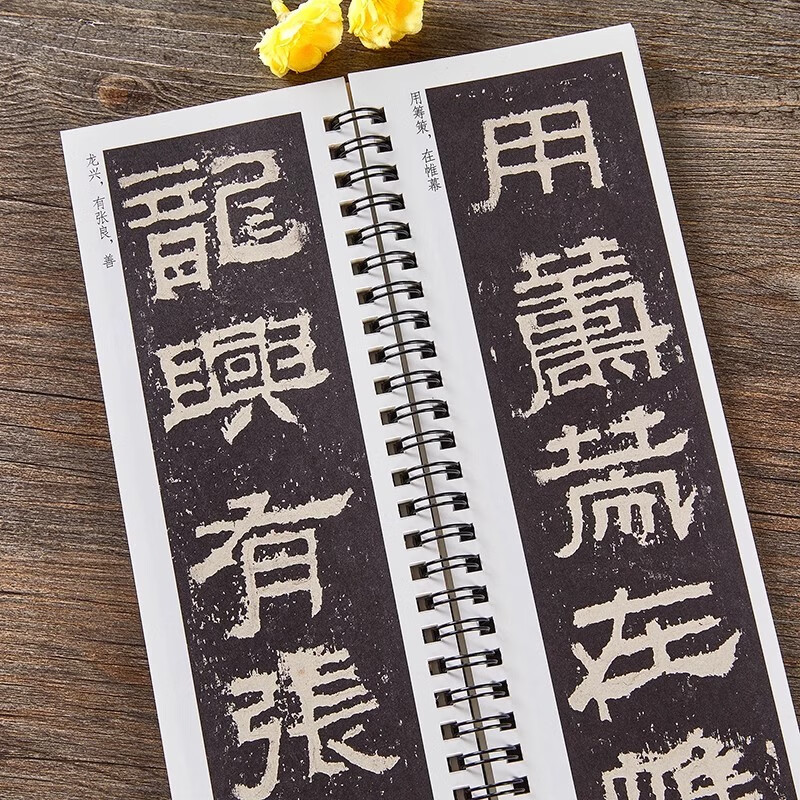 龙兴，有张良，善
龍興有張
用筹策，在帷幕
用籌策在帷